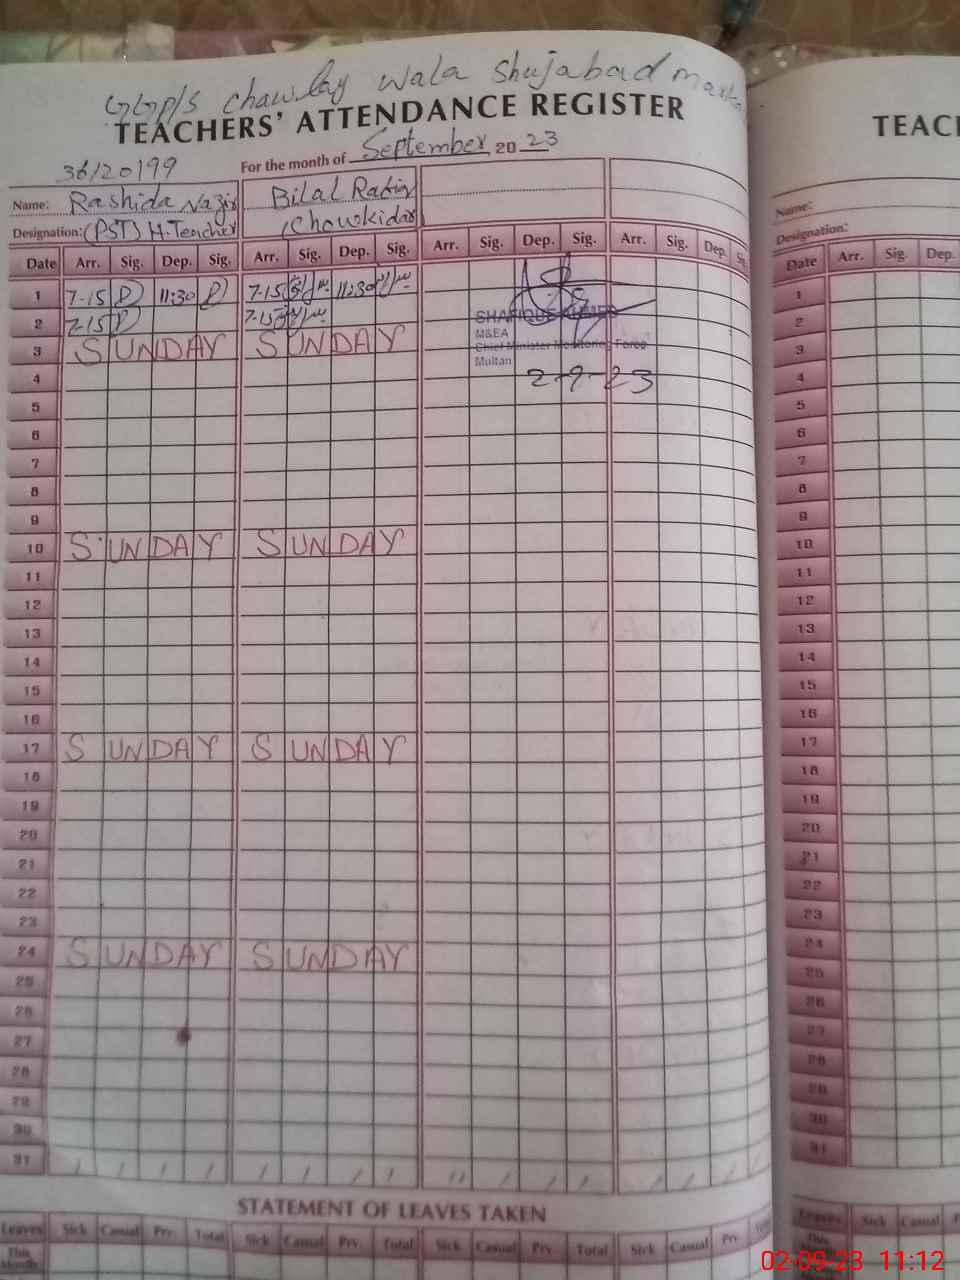 GGP/S chawlay wala Shujabad
TEACHERS' ATTENDANCE REGISTER
TEAC
36/20199
For the month of September 2023
Name: Rashida Nazir
Bilal
Name:
Designation: (PST) H.Teacher
(Chowkidar)
Designation:
Date Arr. Sig. Dep. Sig. Arr. Sig. Dep. Sig. Arr. Sig. Dep. Sig. Arr. Sig. Dep. Sig.
Date Arr. Sig. Dep.
1 7-15 11:30 7-15 11:30
2 7-15 7-15
3 SUNDAY SUNDAY
4
5
6
7
8
9
10 SUNDAY SUNDAY
11
12
13
14
15
16
17 SUNDAY SUNDAY
18
19
20
21
22
23
24 SUNDAY SUNDAY
25
26
27
28
29
30
31
M&EA
Chief Minister Monitoring Force
Multan
2-9-23
1
2
3
4
5
6
7
8
9
10
11
12
13
14
15
16
17
18
19
20
21
22
23
24
25
26
27
28
29
30
31
STATEMENT OF LEAVES TAKEN
Leaves Sick Casual Prv. Total Sick Casual Prv. Total Sick Casual Prv. Total Sick Casual Prv.
Leaves Sick Casual
This Month:
02-09-23 11:12